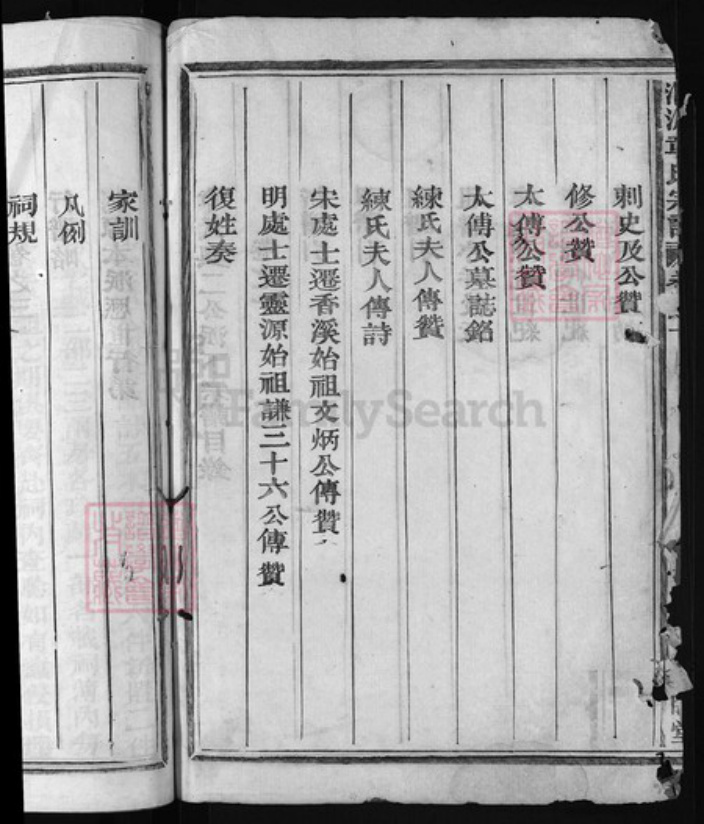 章氏宗譜
刺史及公贊
修公贊
太傅公贊
太傅公墓誌銘
練氏夫人傳贊
練氏夫人傳詩
宋處士遷香溪始祖文炳公傳贊
明處士遷靈源始祖謙三十六公傳贊
復姓奏
家訓
凡例
祠規
FamilySearch